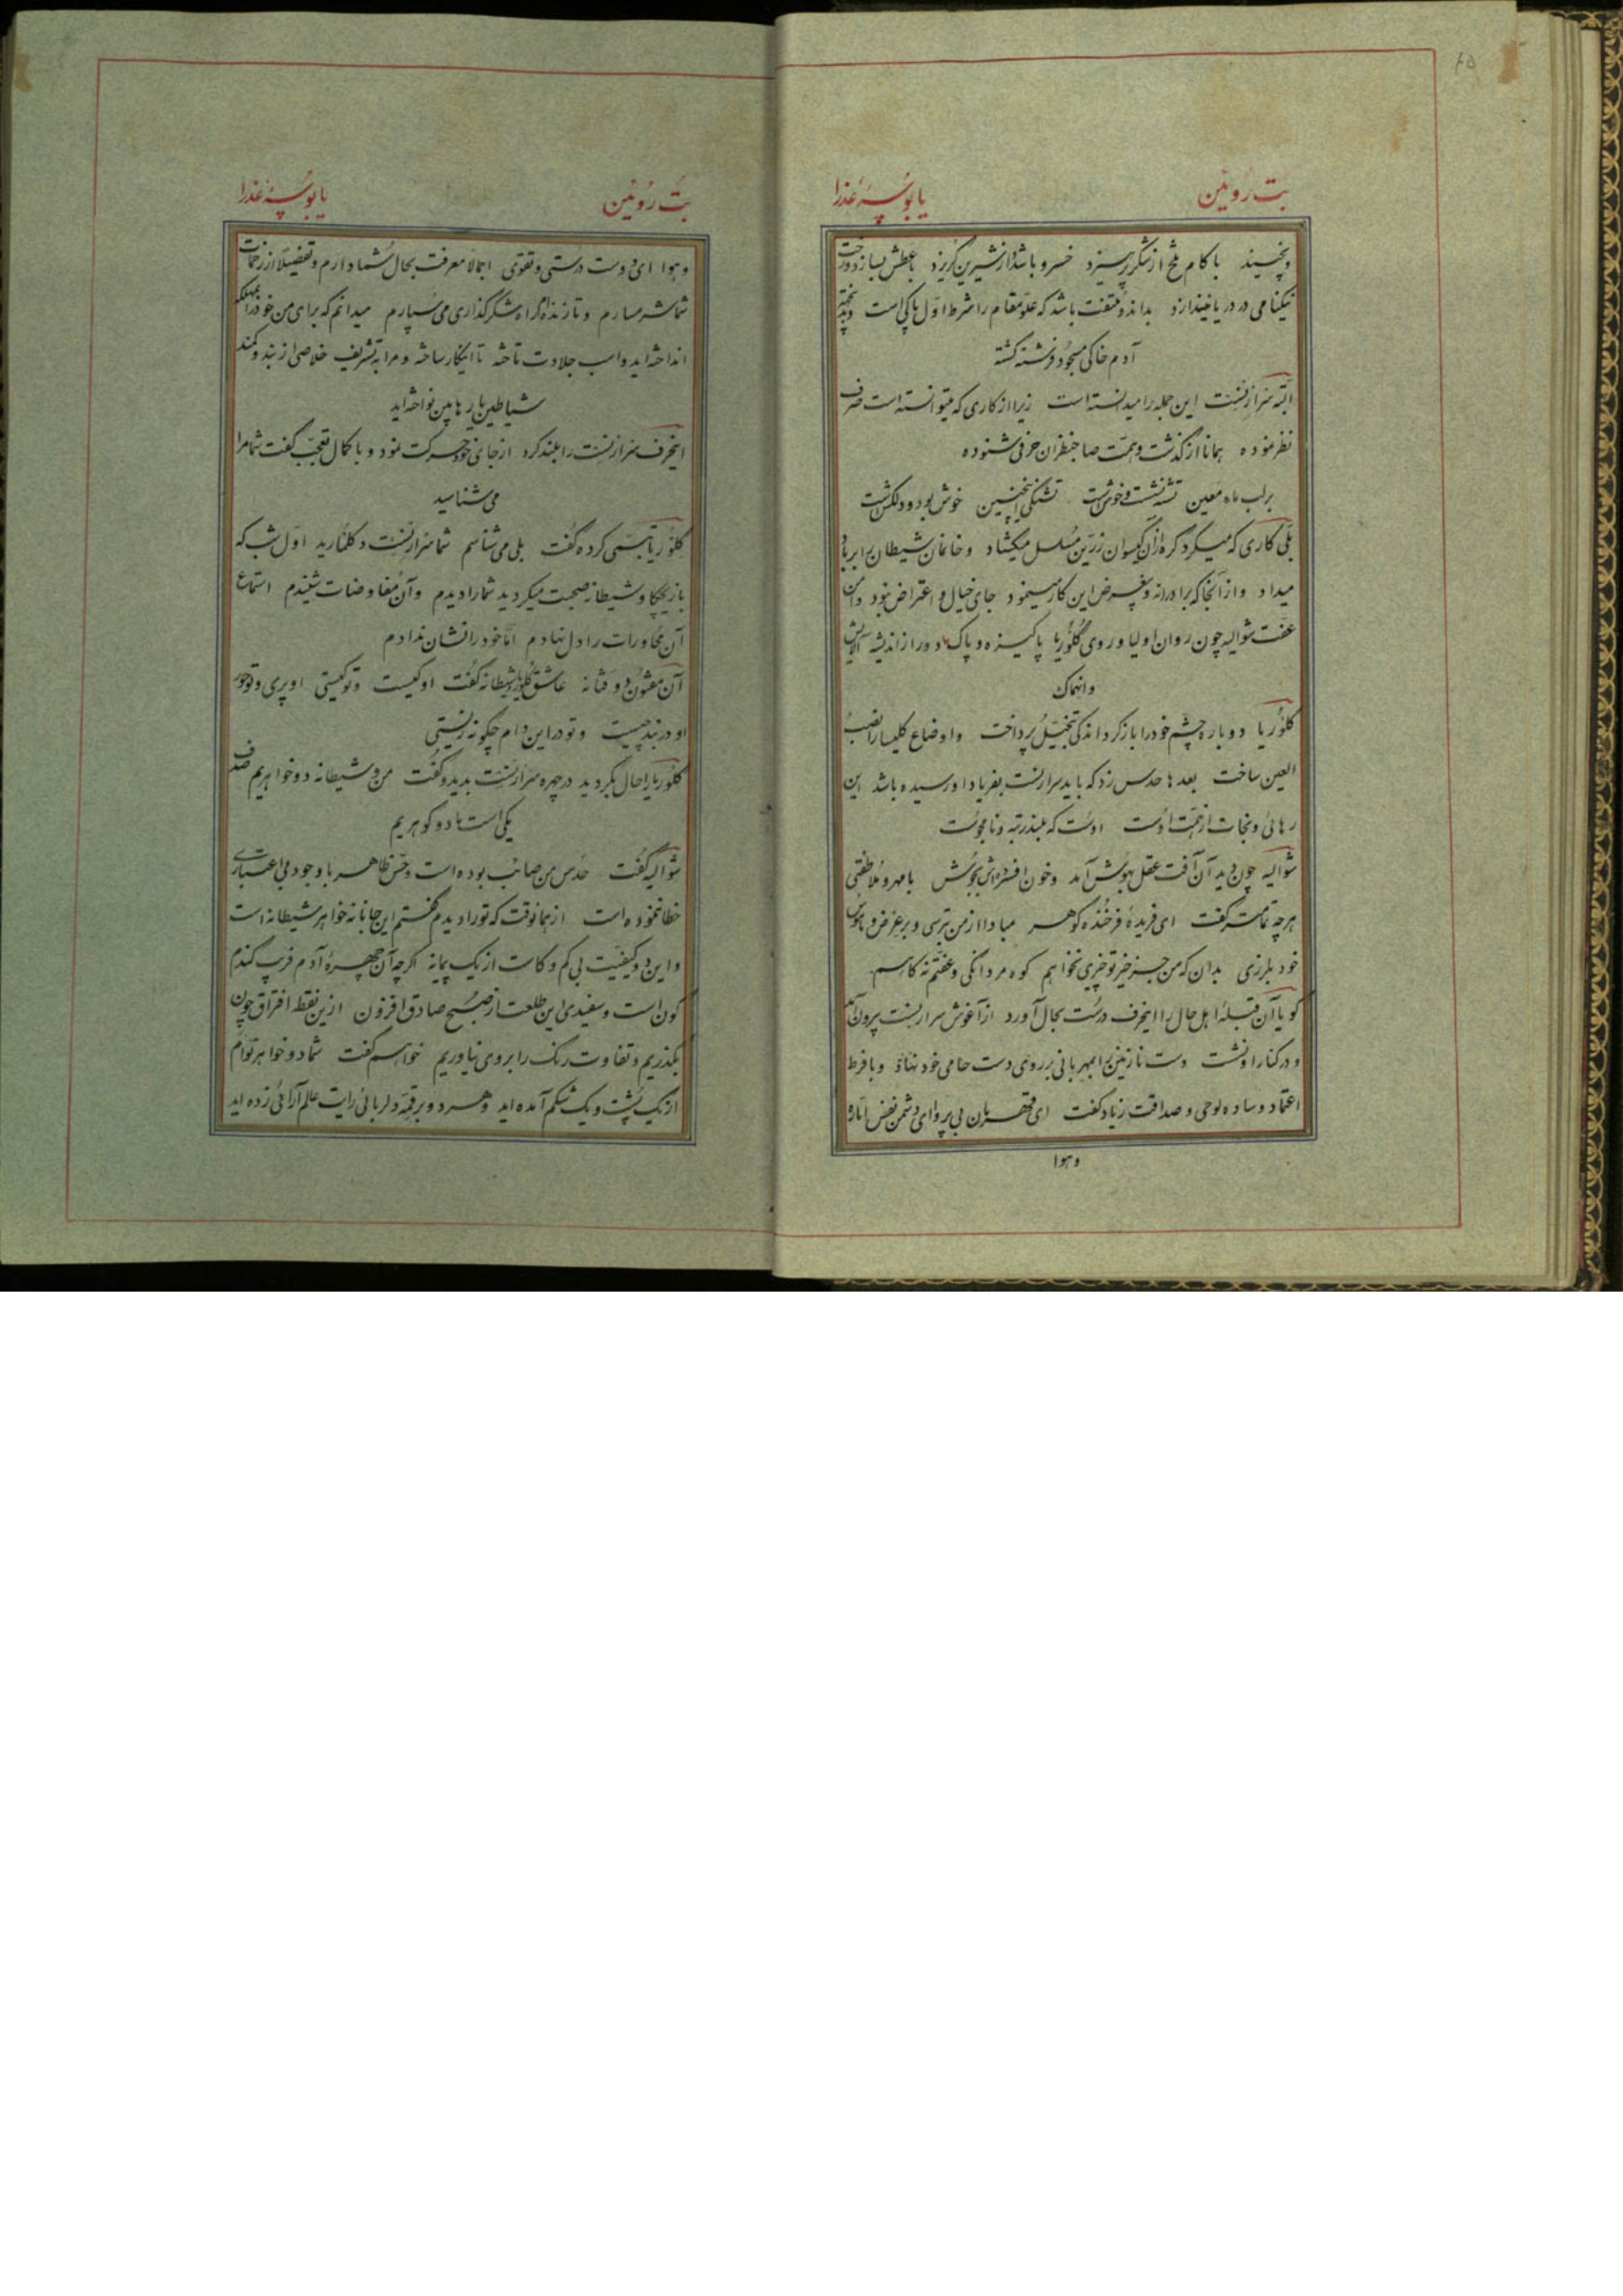 ۶۵
بت رُوئین
یا بُوسهٔ عذرا
ونچسپید با کام تلخ از شکر پرهیزد خسرو باشد و از شیرین گریزد با عطش بسازد و رخت
نیکنامی در دریا نیندازد بداند و ملتفت باشد که علو مقام را شرط اوّل پاکی است
آدم خاکی مسجود فرشته گشته
البته سرارنست این جمله را میدانسته است زیرا از کاری که میتوانسته است صرف
نظر نموده همانا از گذشت و همت صاحبنظران حرفی شنوده
بر لب ماء معین تشنه نشست و خوش است تشنگی اینچنین خوش بود و دلکش است
بلی کاری که میکرد گره از آن گیسوان زرین مسلسل میگشاد و خانمان شیطان را بر باد
میداد و از آنجا که برادرانه و بیغرض این کار میینمود جای خیال و اعتراض نبود دامن
عفت شوالیه چون روان اولیا و روی گلوریا پاکیزه و پاک و دور از اندیشه آلایش
وانهماک
گلوریا دوباره چشم خود را باز کرد اندکی بتخیل پرداخت و اوضاع کلیسا را نصب
العین ساخت بعدها حدس زد که باید سرارنست بفریاد او رسیده باشد این
رهائی و نجات از همت اوست اوست که بلندرتبه و نامجوست
شوالیه چون دید آن آفت عقل بهوش آمد و خون افسرده‌اش بجوش با مهر و ملاطفتی
هرچه تمامتر گفت ای فریدهٔ فرخنده گوهر مبادا از من بترسی و بر عرض و ناموس
خود بلرزی بدان که من جز خیر تو چیزی نخواهم کوه مردانگی و عفتم نه کاهم
گویا آن قبلهٔ اهل حال را اینحرف درست بحال آورد از آغوش سرارنست بیرون آمد
و در کنار او نشست دست نازنین را بمهربانی بر روی دست حامی خود نهاد و با فرط
اعتماد و ساده لوحی و صداقت زیاد گفت ای قهرمان بی پروا ای دشمن نفس امّاره
و هوا
بت رُوئین
یا بُوسهٔ عذرا
و هوا ای دوست درستی و تقوی اجمالا معرفت بحال شما دارم و تفصیلا از زحمات
شما شرمسارم و تا زنده‌ام راه شکرگذاری می‌سپارم میدانم که برای من خود را بمهلکه
انداخته‌اید و اسب جلادت تاخته تا اینکار ساخته و مرا به تشریف خلاصی از بند و کمند
شیاطین یا رهابین نواخته‌اید
اینحرف سرارنست را بلند کرد از جای خود حرکت نمود و با کمال تعجب گفت شما مرا
می شناسید
گلوریا تبسمی کرده گفت بلی می شناسم شما سرارنست دکلنارید اول شب که
با زیگیگا و شیطانه صحبت میکردید شما را دیدم و آن مفاوضات شنیدم استماع
آن محاورات را دل نهادم امّا خود را نشان ندادم
آن مفتون دو فتانه عاشق گلوریا و شیطانه گفت او کیست و تو کیستی او پری و تو حور
او در بند چیست و تو در این دام چگونه زیستی
گلوریا را حال بگردید در چهره سرارنست بدید و گفت من و شیطانه دو خواهریم صدف
یکی است ما دو گوهریم
شوالیه گفت حدس من صائب بوده است و حسّ ظاهر با وجود بی اعتباری
خطا ننموده است از همانوقت که تو را دیدم گفتم این جانانه خواهر شیطانه است
و این دو کیفیت بی کم و کاست از یک پیمانه اگرچه آن چهرهٔ آدم فریب گندم
گون است و سفیدی این طلعت از صبح صادق افزون ازین نقطه افتراق چون
بگذریم و تفاوت رنگ را بروی نیاوریم خواهم گفت شما دو خواهر توأم
از یک پشت و یک شکم آمده‌اید و هر دو بر قمهٔ دلربائی رایت علم آرائی زده‌اید